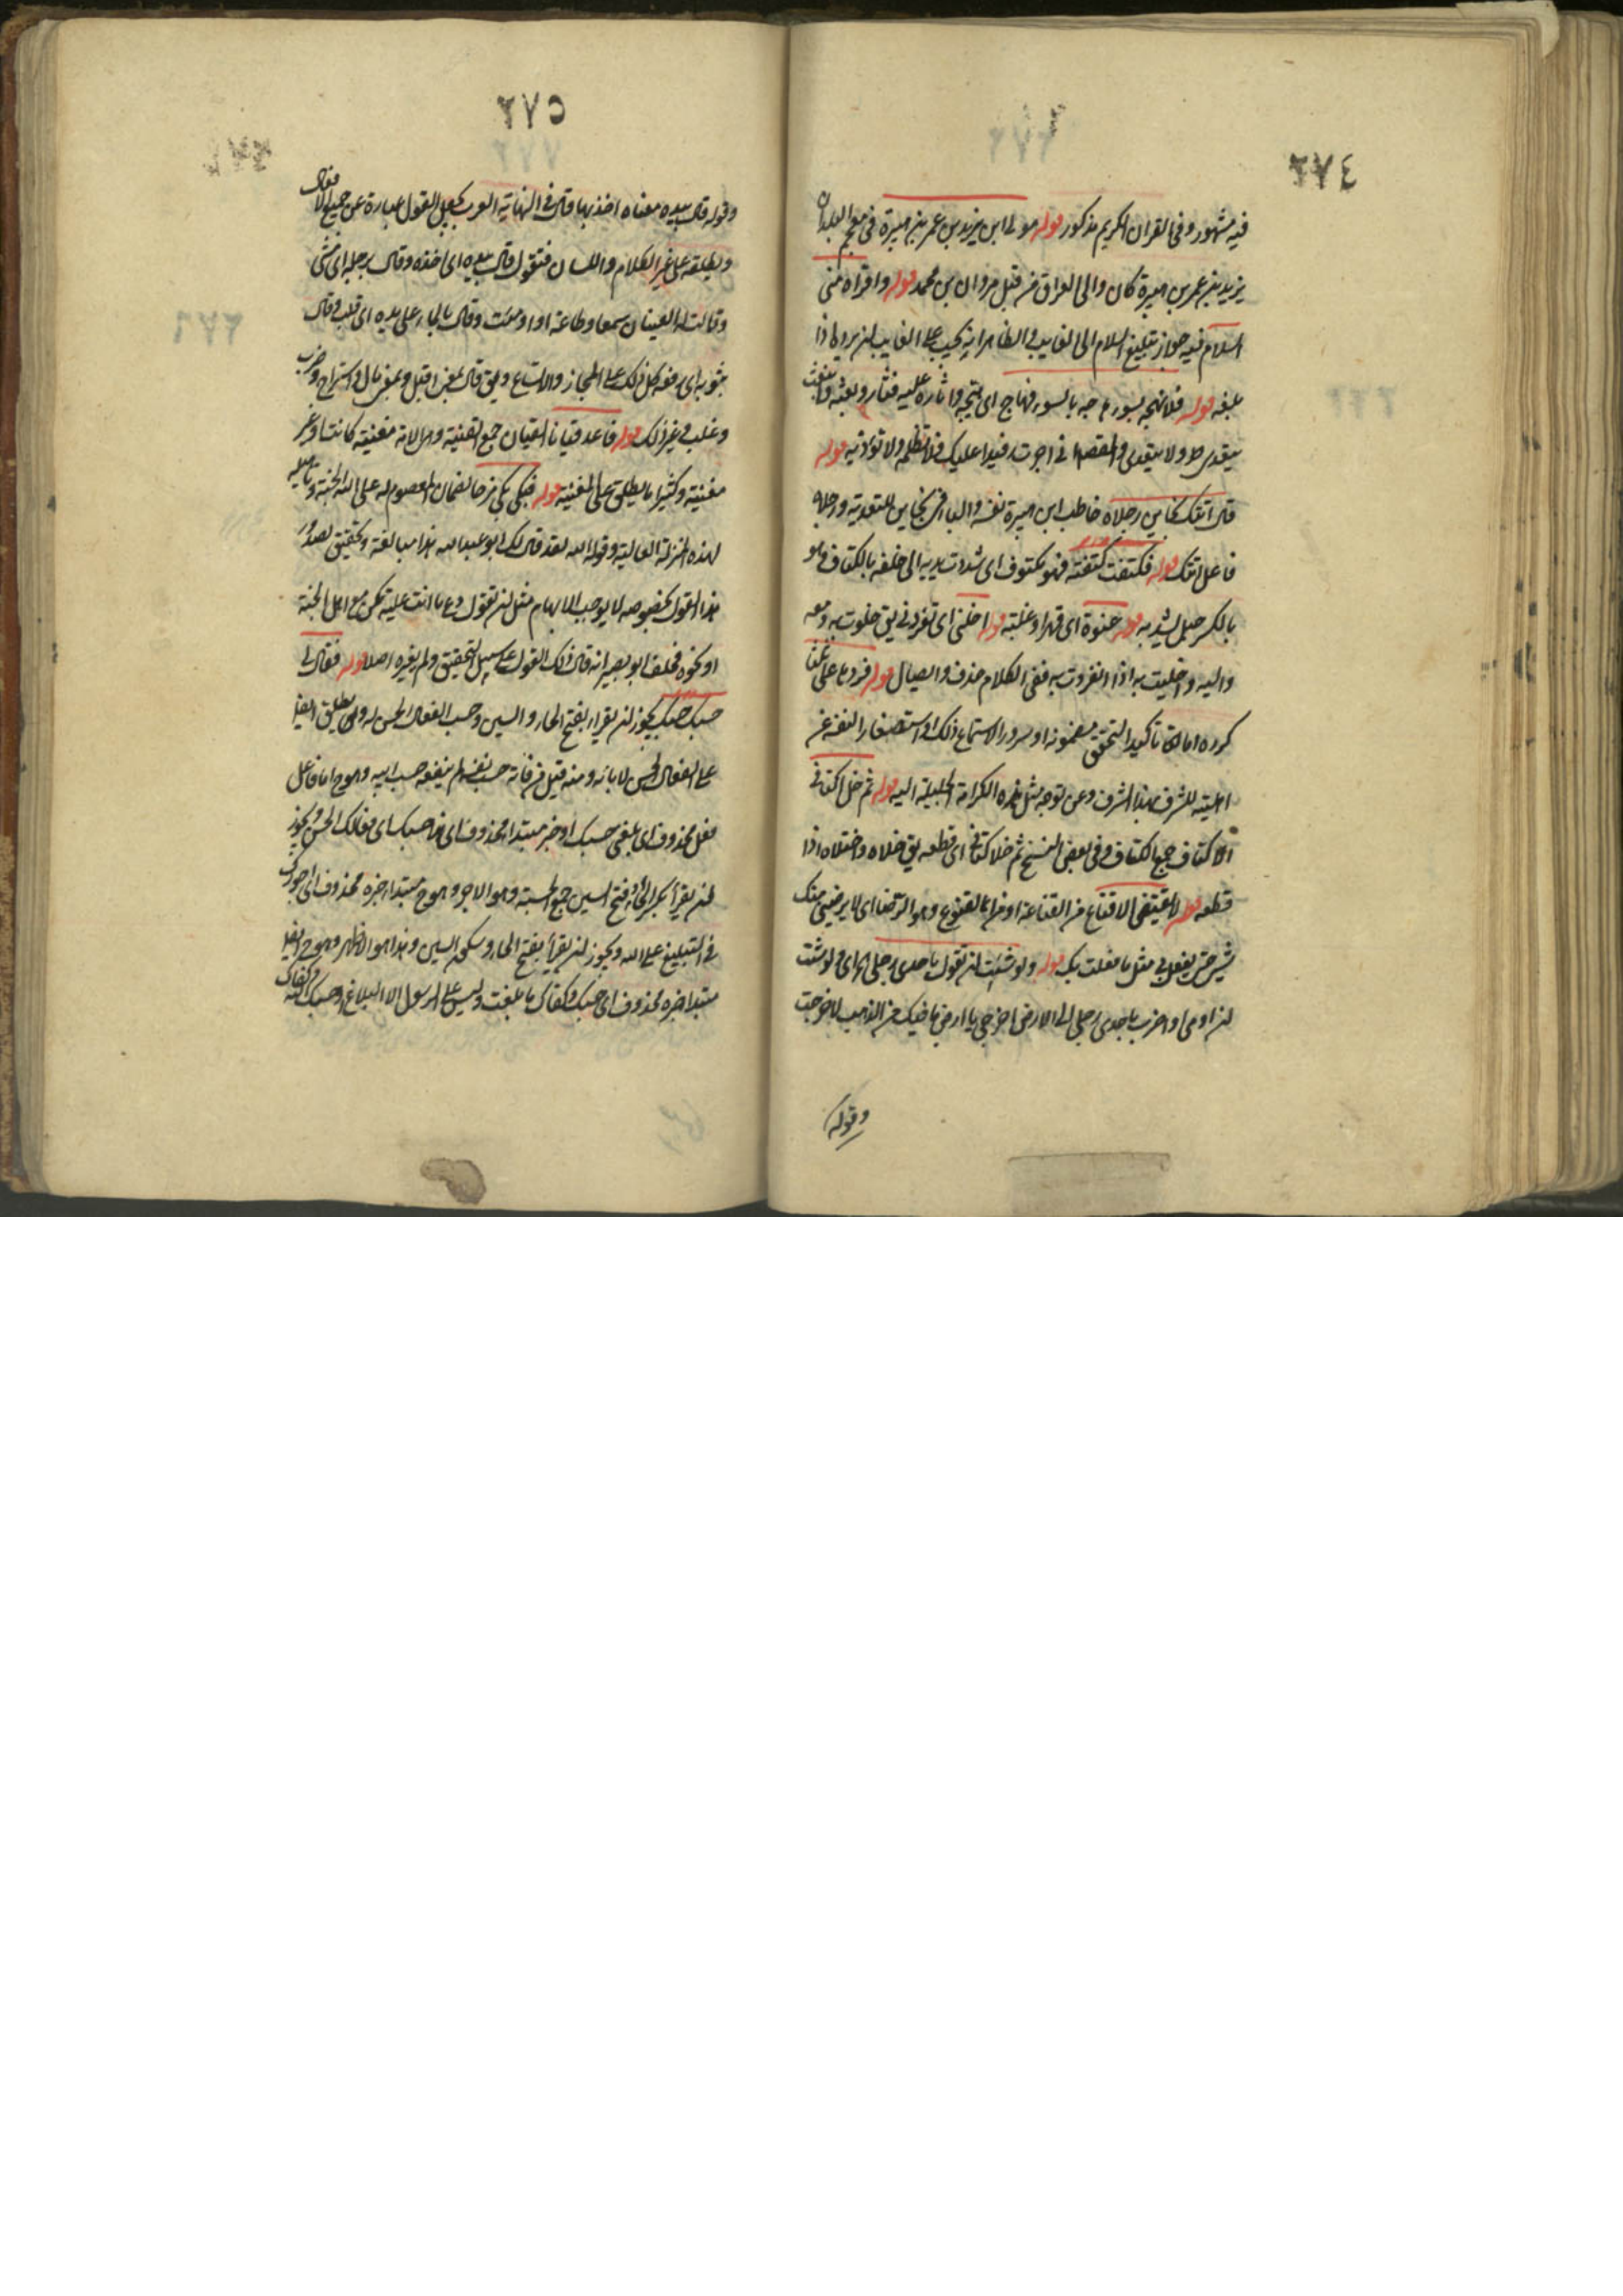 ٢٧٤
فيه مشهور وفي القران الكريم مذكور قوله مولى ابن يزيد بن عمر بن هبيرة في معجم البلدان
يزيد بن عمر بن هبيرة كان والي العراق من قبل مروان بن محمد قوله واقراه مني
السلام فيه جواز تبليغ السلام الى الغايب والظاهر انه يجيب على الغايب ان يرد اذا
بلغه قوله فلا تهجه بسوء هاجه بالسوء فهاج اى يتهيجه واثاره عليه فثار وبعثه فانبعث
يتعدى ولا يتعدى والمقصد اني اجرت رفيدا عليك فلا تظلمه ولا تؤذيه قوله
قال اتتك بخاين رجلاه خاطب ابن هبيرة نفسه والباء في بخاين للتعدية ورجلاه
فاعل اتتك قوله فكتفت كتفته فهو مكتوف اى شددت يديه الى خلفه بالكتاف وهو
بالكسر حبل يشد به قوله عنوة اى قهرا وغلبة قوله اخلني اى تفرد بي يق خلوت به ومعه
واليه واخليت به اذا انفردت به ففي الكلام حذف وايصال قوله فردها على
كرره اما تاكيدا لتحقق مضمونه او سرور الاستماع ذلك او استصغار النفسه عن
اهليته للشرف بهذا الشرف وعن توجه مثل هذه الكرامة الجليلة اليه قوله ثم حل اكتافي
الاكتاف جمع الكتاف وفي بعض النسخ ثم خلا كتافي اى قطعه يق خلاه واختلاه اذا
قطعه قوله لا يقنعني الاقناع من القناعة او من القنوع وهو الرضا اى لا يرضيني منك
شيء حتى تفعل بي مثل ما فعلت بك قوله ولو شئت ان تقول باحدى رجلي اى ولو شئت
ان اومى او اضرب باحدى رجلي الى الارض اخرجي يا ارض ما فيك من الذهب لاخرجت
وقوله
٢٧٥
وقوله قال بيده معناه اخذ بها قال في النهاية العرب تجعل القول عبارة عن جميع الافعال
وتطلقه على غير الكلام واللسان فتقول قال بيده اى اخذه وقال برجله اى مشى
وقالت له العينان سمعا وطاعة اى اومئت وقال بالماء على يده اى قلب وقال
بثوبه اى رفعه كل ذلك على المجاز والاتساع ويق قال بمعنى اقبل وبمعنى مال واستراح وضرب
وغلب وغير ذلك قوله فاعد قيانا القيان جمع القينة وهي الامة مغنية كانت او غير
مغنية وكثيرا ما يطلق على المغنية قوله فبكى بكى فرحا لضمان المعصوم له على الله الجنة
لهذه المنزلة العالية وقوله الله لقد قال لك ابو عبد الله هذا مبالغة وتحقيق لصدور
هذا القول بخصوصه لا يوجب الابهام مثل ان تقول دع ما انت عليه تكن من اهل الجنة
او نحوه فحلف ابو بصير انه قال ذلك القول على سبيل التحقيق ولم يغيره اصلا قوله فقال لي
حسبك حسبك يجوز ان يقراء بفتح الحاء والسين وحسب الفعال الحسن له ولابائه يطلق ايضا
على الفعال الحسن لا بائه ومنه قيل من فاته حسب نفسه لم ينفعه حسب ابيه وهو ح اما فاعل
فعل محذوف اى بلغني حسبك او خبر مبتدا محذوف اى هذا حسبك اى فعالك الحسن ويجوز
ان يقرأ بكسر الحاء وفتح السين جمع الحسبة وهو الاجر وهو ح مبتدا خبره محذوف اى اجورك
في التبليغ على الله ويجوز ان يقرأ بفتح الحاء وسكون السين وهذا هو الاظهر وهو ح ايضا
مبتدا خبره محذوف اى حسبك وكفاك ما بلغت وليس على الرسول الا البلاغ او حسبك الله وكفاك